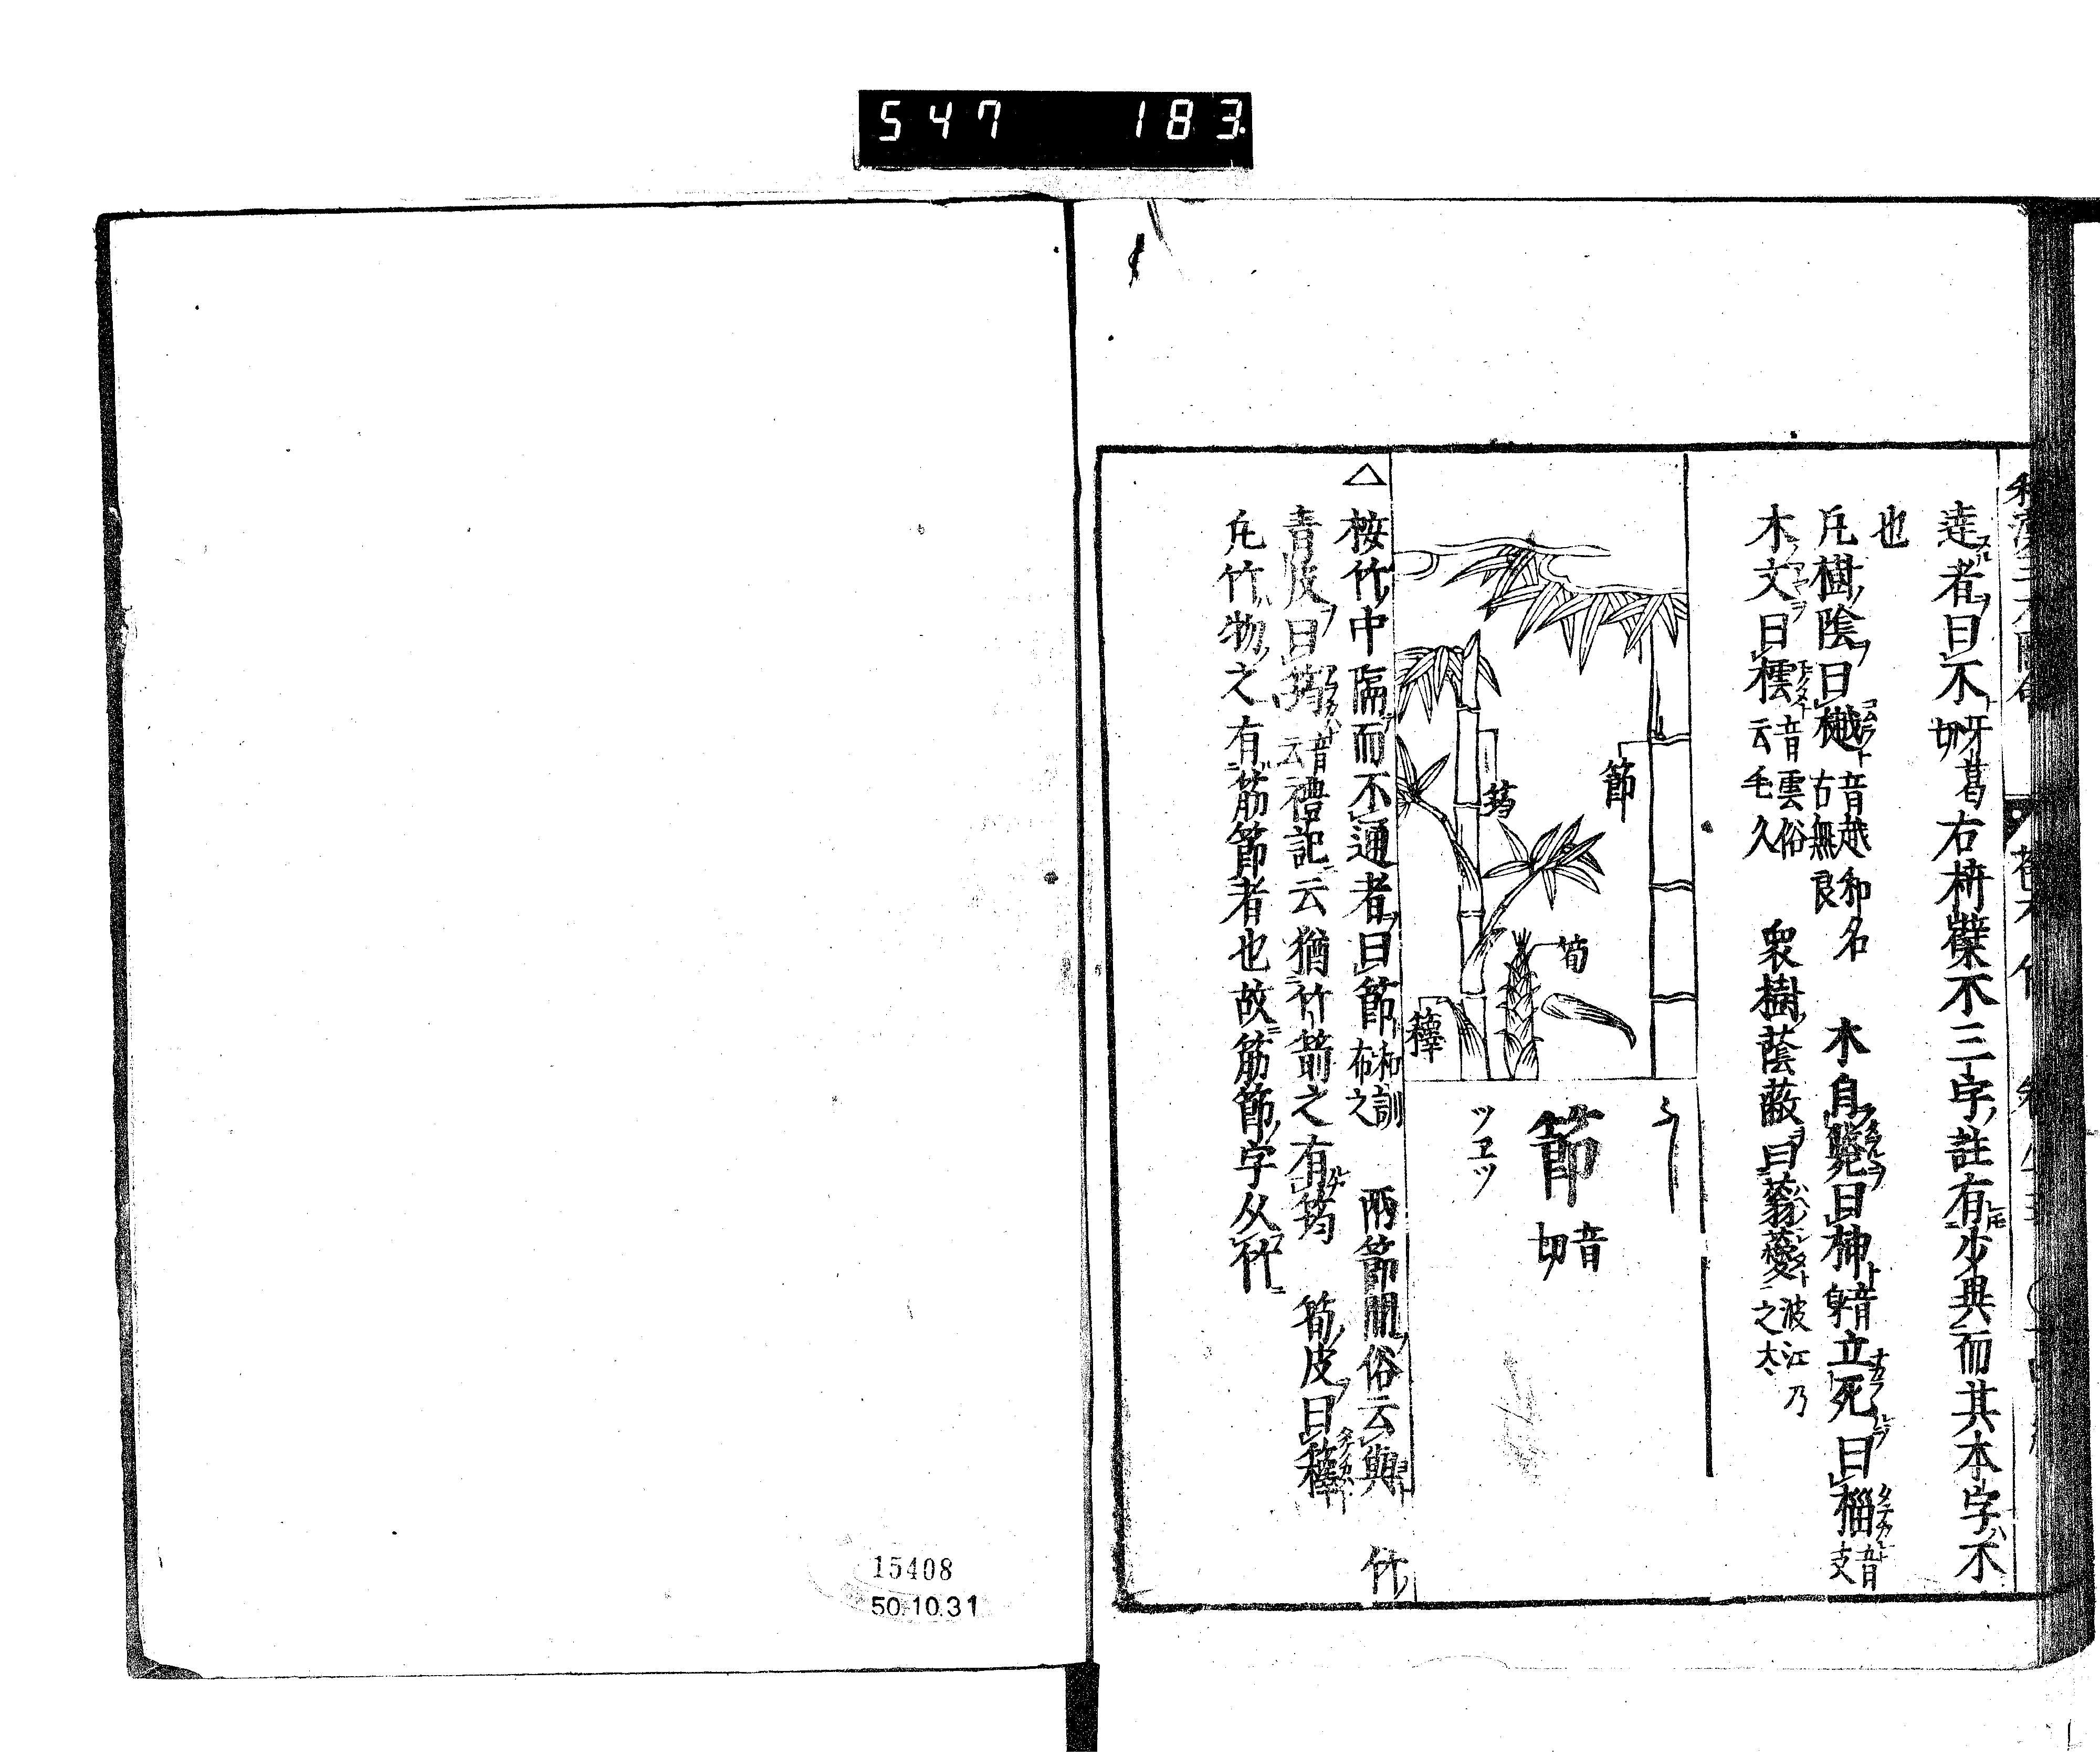 547 183
達者曰不 呀葛切 右枿蘖不三字註有少異而其本字不
也
凡樹陰曰樾 音越和名古無良 木自斃曰柛 音身 立死曰椔 音支
木文曰橒 音雲俗云毛久 衆樹蔭蔽曰蓊薆 波江乃之太
節
筠
筍
籜
ふし
節 音切
ツヱツ
△按竹中隔而不通者曰節 和訓布之 兩節間俗云與 竹
青皮曰筠 音云 禮記云猶竹箭之有筠 筍皮曰籜
凡竹物之有筋節者也故筋節字从竹
15408
50.10.31